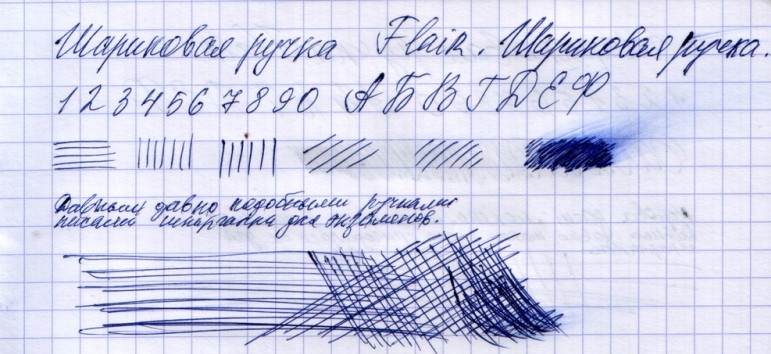 Шариковая ручка Flair. Шариковая ручка.
1 2 3 4 5 6 7 8 9 0 А Б В Г Д Е Ф
Давным давно подобными ручками
писали шпаргалки для экзаменов.